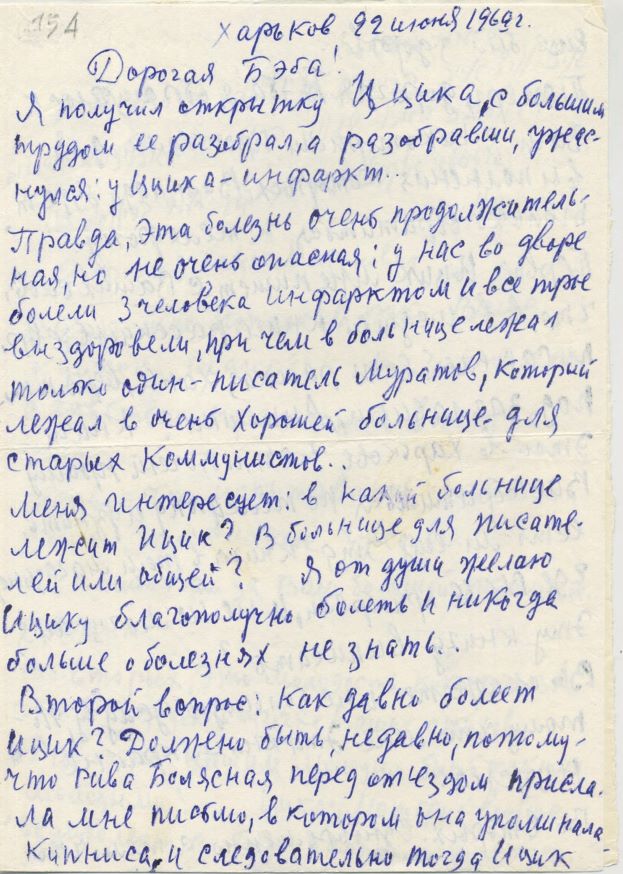 154
Харьков, 22 июня 1969г.
Дорогая Бэба!
Я получил открытку Ицика, с большим
трудом ее разобрал, а разобравши, ужас-
нулся: у Ицика - инфаркт..
Правда, эта болезнь очень продолжитель-
ная, но не очень опасная: у нас во дворе
болели 3 человека инфарктом и все трое
выздоровели, при чем в больнице лежал
только один - писатель Муратов, который
лежал в очень хорошей больнице - для
старых коммунистов..
Меня интересует: в какой больнице
лежит Ицик? В больнице для писате-
лей или общей? Я от души желаю
Ицику благополучно болеть и никогда
больше о болезнях не знать...
Второй вопрос: Как давно болеет
Ицик? Должно быть, недавно, потому-
что Рива Болясная перед от'ездом присла-
ла мне письмо, в котором она упоминала
Кипниса, и следовательно тогда Ицик